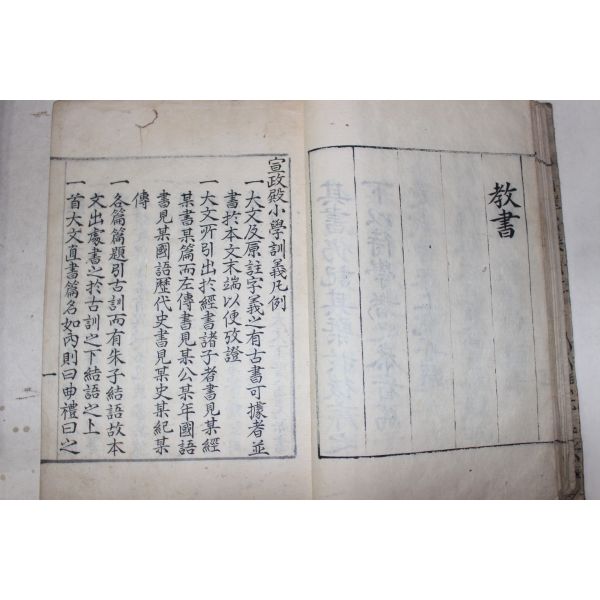 教書
宣政殿小學訓義凡例
一大文及原註字義之有古書可據者並
書扵本文末端以便攷證
一大文所引出扵經書諸子者書見某經
某書某篇而左傳書見某公某年國語
書見某國語歷代史書見某史某紀某
傳
一各篇篇題引古訓而有朱子結語故本
文出處書之扵古訓之下結語之上
一首大文直書篇名如內則曰曲禮曰之
一